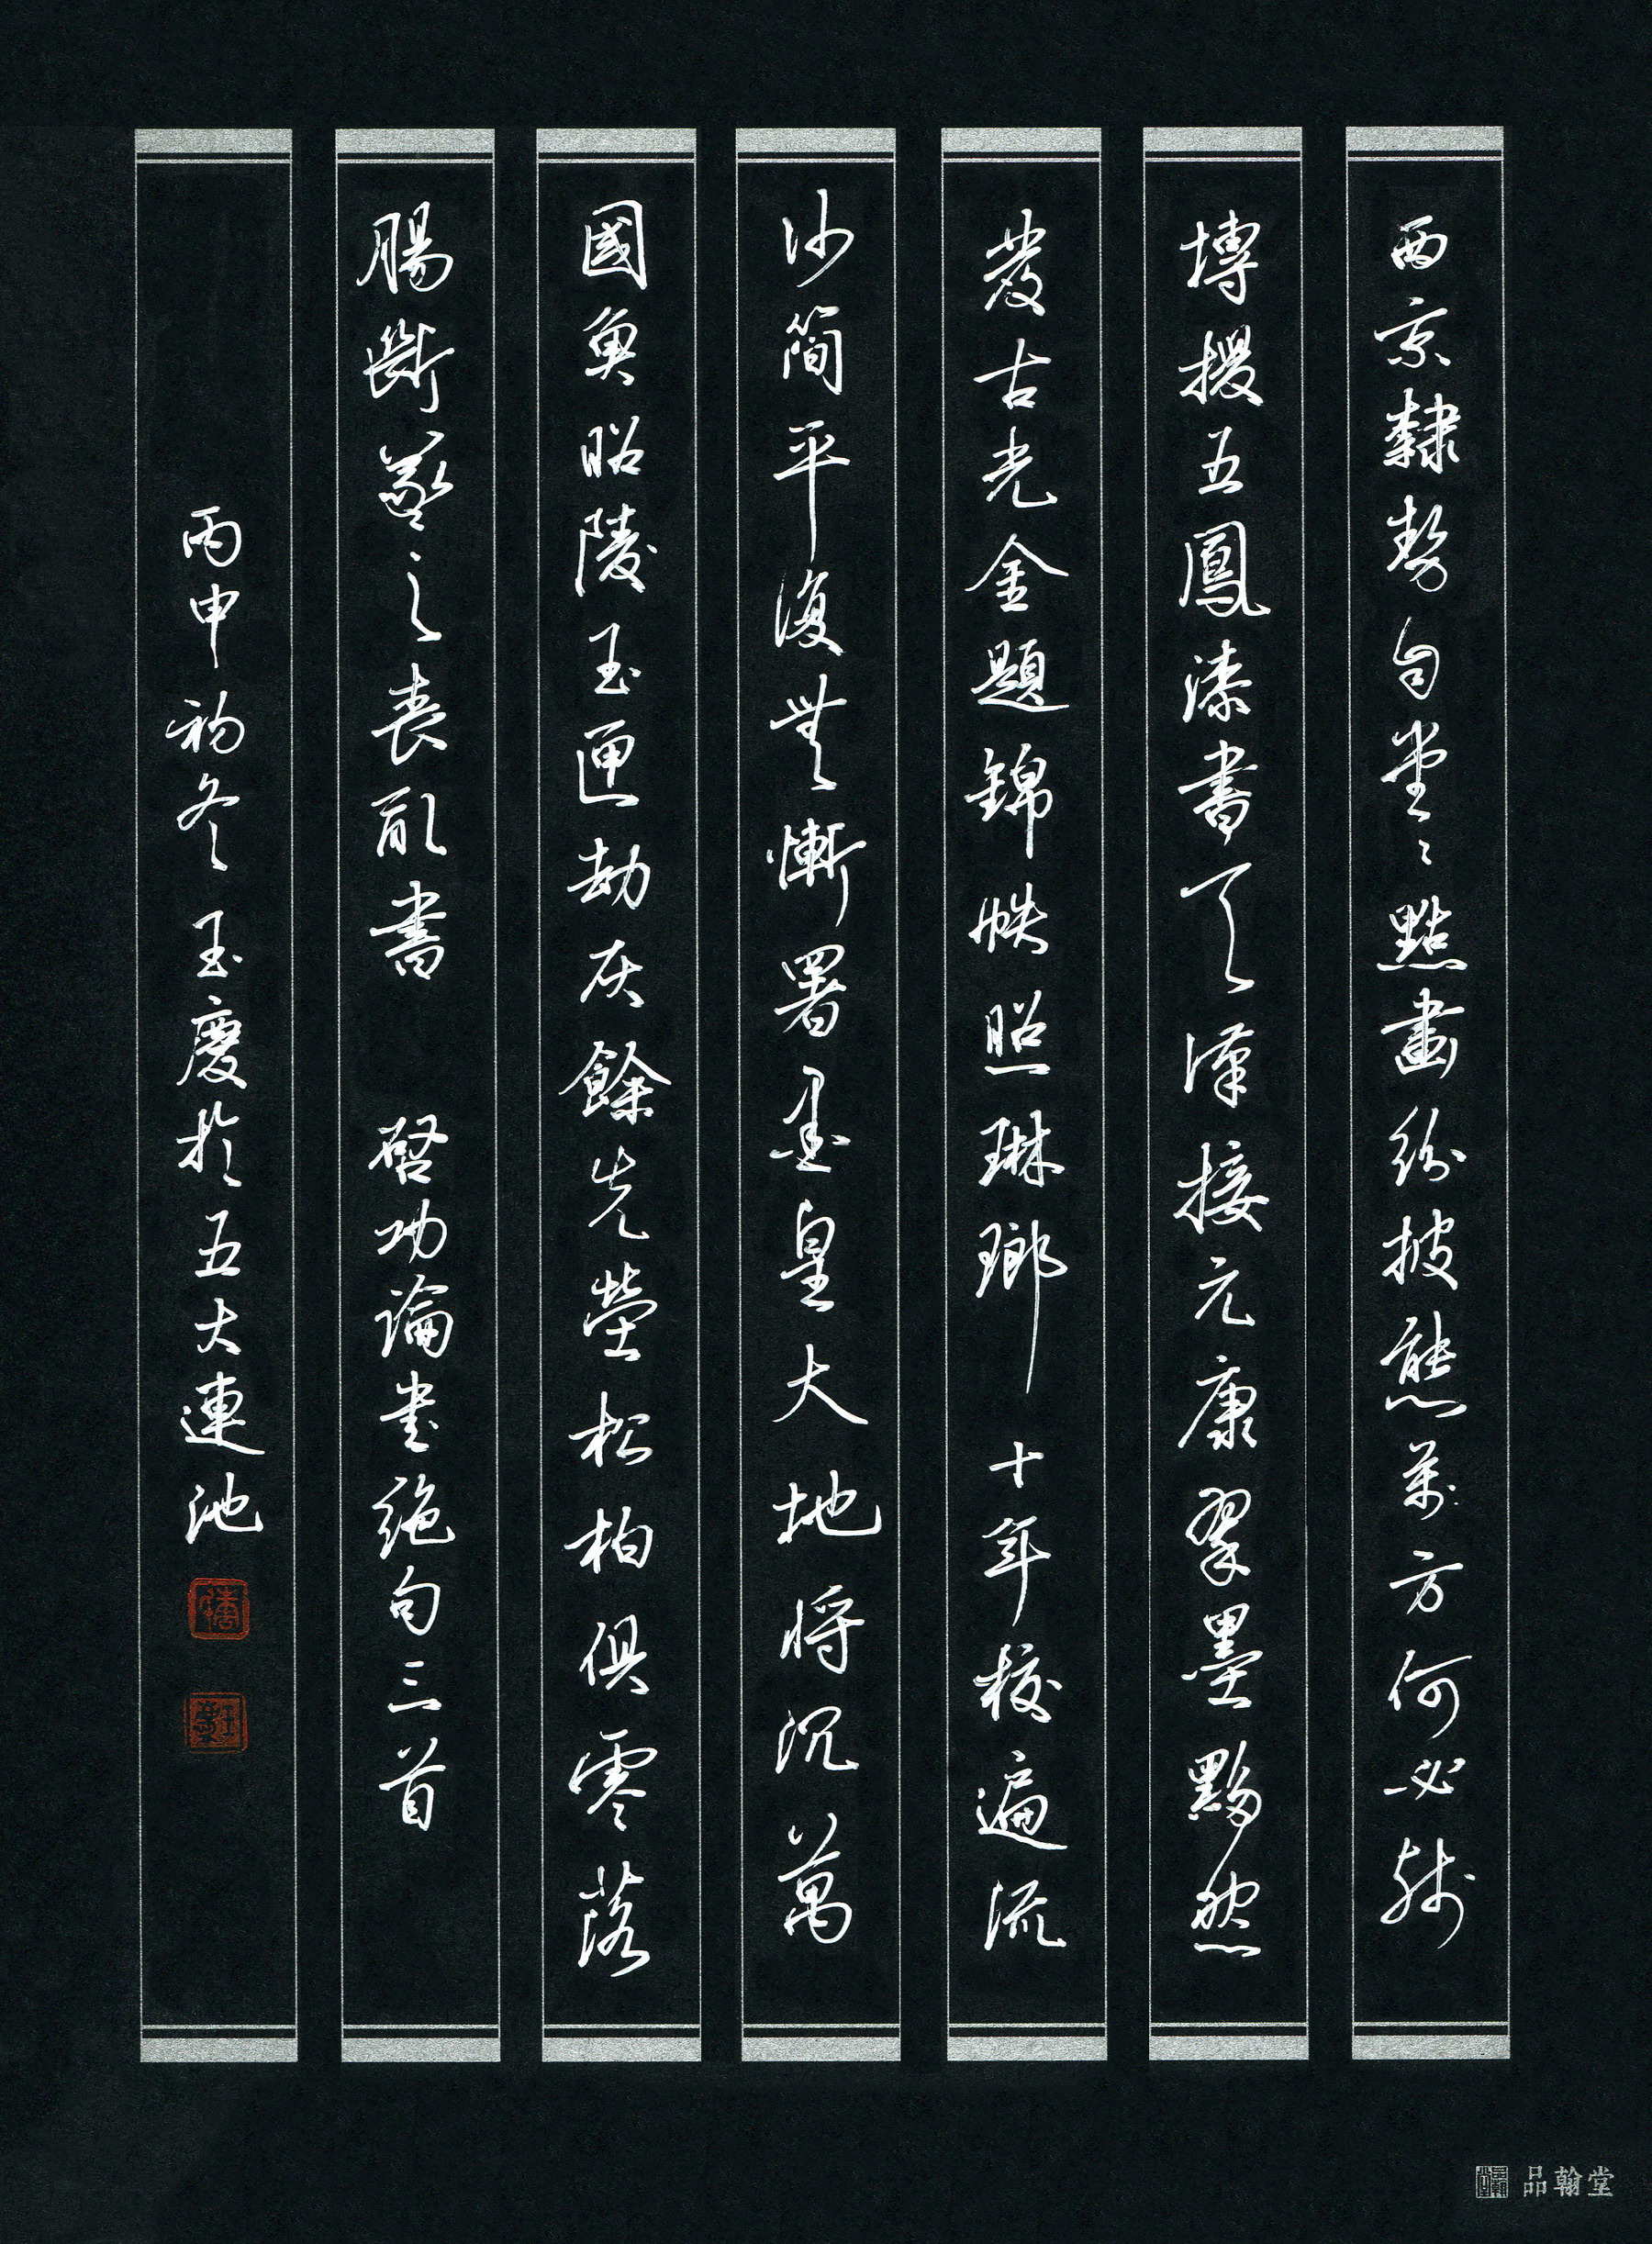 西京隸勢自堂々點畫紛披態萬方何必殘
塼搜五鳳漆書天漢接元康翠墨黟然
發古光金題錦帙照琳瑯十年校遍流
沙簡平復無慚署墨皇大地將沉萬
國魚昭陵玉匣劫灰餘先塋松柏俱零落
腸斷羲之喪亂書 啓功論書絕句三首
丙申初冬玉慶於五大連池
品翰堂